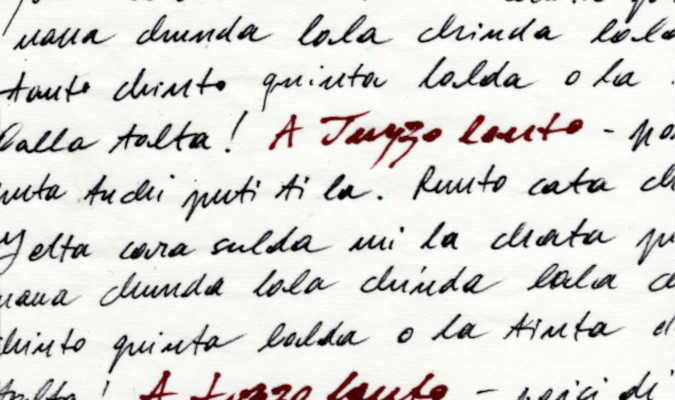 nana chunda lola chinda lola
tanto chinto quinta lalda o la
lalla talta! A Tuzzo lanto -
tuchi puti ti la. Runto cata
Yelta cara sulda mi la chata
nana chunda lola chinda lala
chinto quinta lalda o la tinta
talta! A tuzzo lanto -